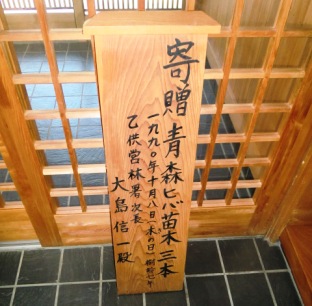 寄贈 青森ヒバ苗木 三本
一九九〇年十月八日(木の日)樹齢七年
乙供営林署次長
大島信一殿